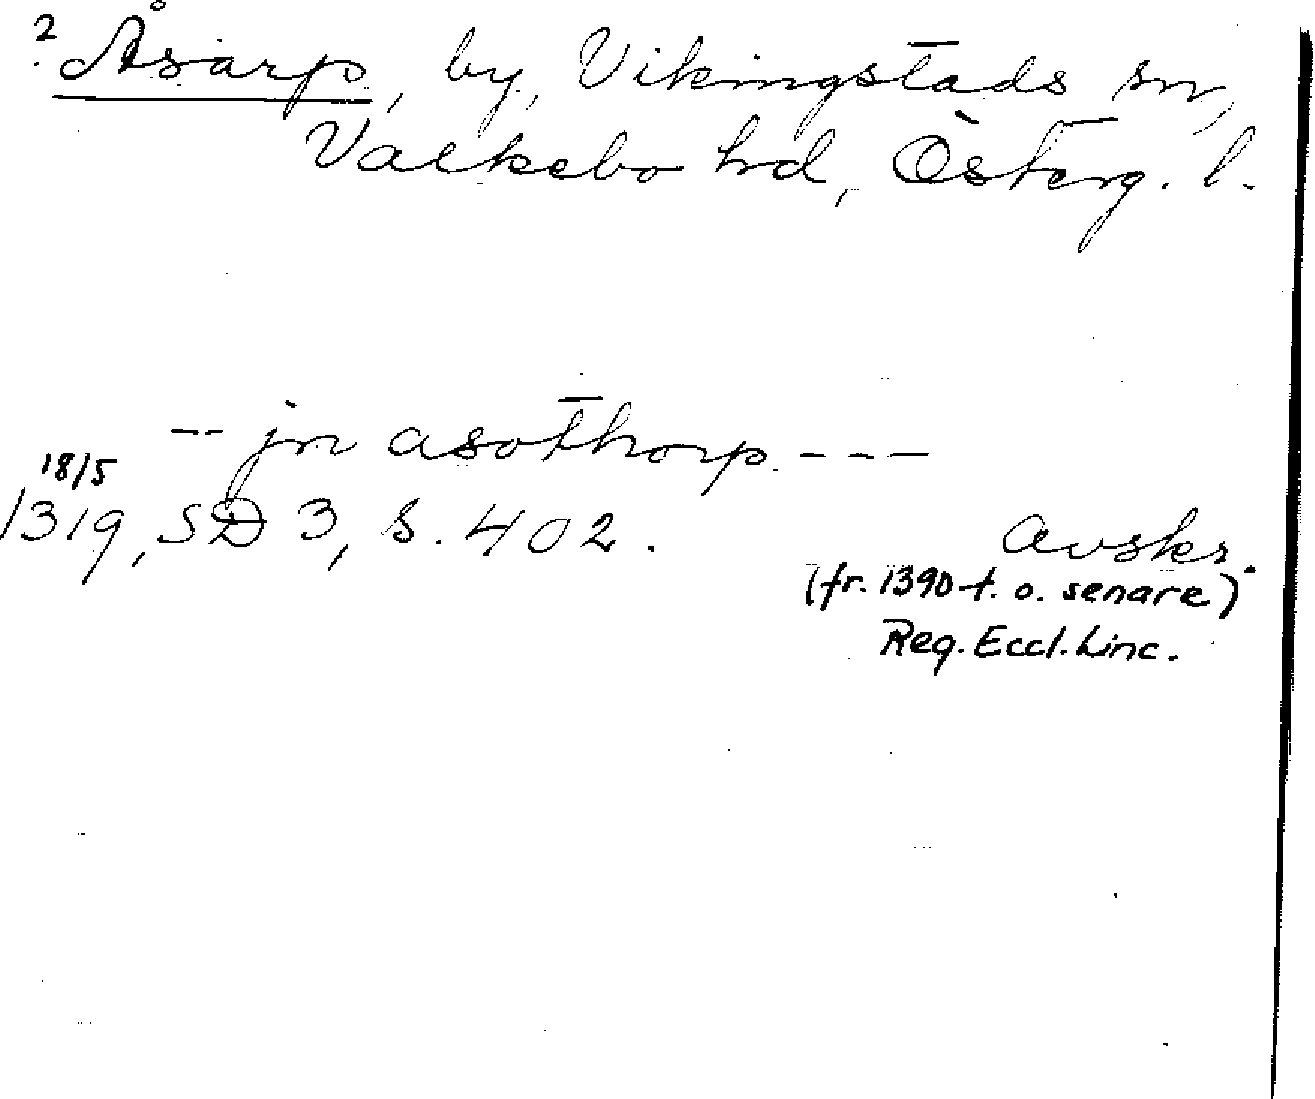 ? Åsarp, by, Vikingstads sn,
Valkebo hd, Österg. l.
-- jn asothorp. ---
18/5
1319, SD 3, s. 402.
Avskr.
(fr. 1390-t. o. senare)
Reg. Eccl. Linc.